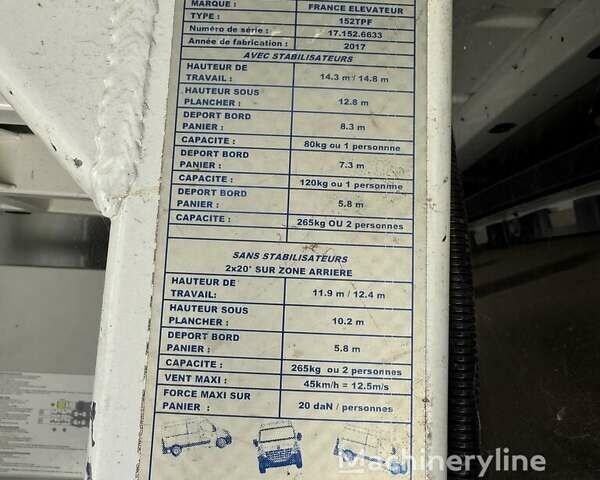 MARQUE : FRANCE ELEVATEUR
TYPE : 152TPF
Numéro de série : 17.152.6633
Année de fabrication : 2017
AVEC STABILISATEURS
HAUTEUR DE
TRAVAIL : 14.3 m / 14.8 m
HAUTEUR SOUS
PLANCHER : 12.8 m
DEPORT BORD
PANIER : 8.3 m
CAPACITE : 80kg ou 1 personnne
DEPORT BORD
PANIER : 7.3 m
CAPACITE : 120kg ou 1 personnne
DEPORT BORD
PANIER : 5.8 m
CAPACITE : 265kg OU 2 personnes
SANS STABILISATEURS
2x20° SUR ZONE ARRIERE
HAUTEUR DE
TRAVAIL: 11.9 m / 12.4 m
HAUTEUR SOUS
PLANCHER : 10.2 m
DEPORT BORD
PANIER : 5.8 m
CAPACITE : 265kg ou 2 personnes
VENT MAXI : 45km/h = 12.5m/s
FORCE MAXI SUR
PANIER : 20 daN / personnes
Machineryline